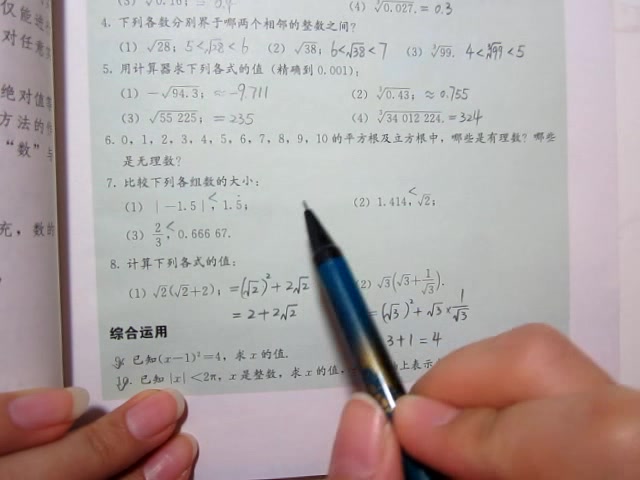 仅能进
(3) ∛0.161; = 0.4 (4) ∛0.027. = 0.3
对任意
4. 下列各数分别界于哪两个相邻的整数之间?
(1) √28; 5<√28<6 (2) √38; 6<√38<7 (3) ∛99. 4<∛99<5
5. 用计算器求下列各式的值 (精确到 0.001):
绝对值
(1) −√94.3; ≈ −9.711 (2) ∛0.43; ≈ 0.755
方法的
(3) √55 225; = 235 (4) ∛34 012 224. = 324
“数”与
6. 0, 1, 2, 3, 4, 5, 6, 7, 8, 9, 10 的平方根及立方根中, 哪些是有理数? 哪些
是无理数?
7. 比较下列各组数的大小:
(1) |−1.5|, < 1.5̇; (2) 1.414, < √2;
充, 数的
(3) 2/3, < 0.666 67.
8. 计算下列各式的值:
(1) √2(√2+2); = (√2)² + 2√2 (2) √3(√3+1/√3).
= 2 + 2√2 = (√3)² + √3×1/√3
综合运用 3+1 = 4
9. 已知(x−1)²=4, 求 x 的值.
10. 已知 |x|<2π, x 是整数, 求 x 的值, 上表示